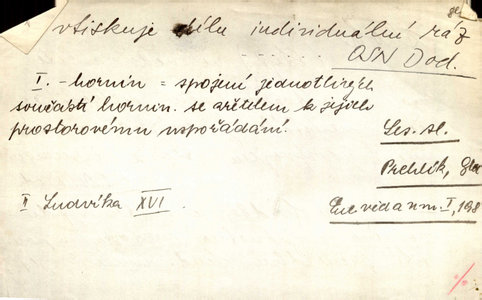 vtiskuje dílu individuální ráz
OSN Dod.
I. - hornin = spojení jednotlivých
součástí hornin. se zřetelem k jejich
prostorovému uspořádání.
Les. sl.
II Ludvíka XVI.